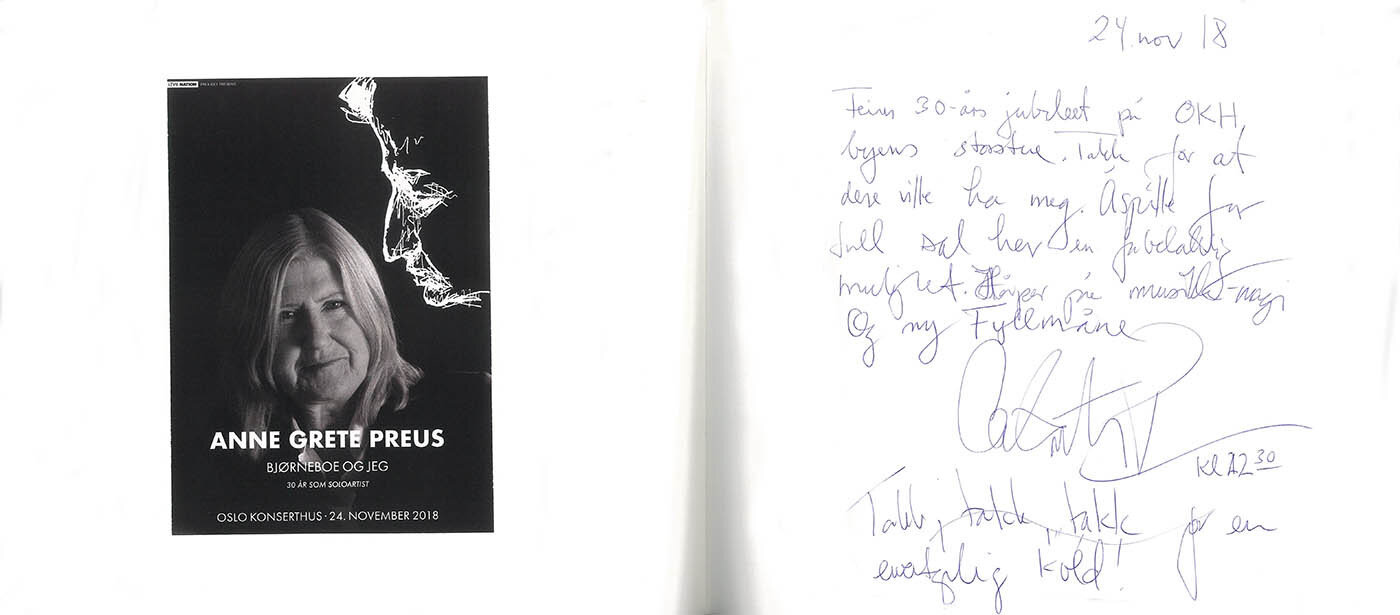 LIVE NATION
ANNE GRETE PREUS
BJØRNEBOE OG JEG
30 ÅR SOM SOLOARTIST
OSLO KONSERTHUS · 24. NOVEMBER 2018
24. nov 18
Feirer 30-års jubileet på OKH,
byens storstue. Takk for at
dere ville ha meg. Å spille for
full sal her en
mulighet. Håper på musikk-magi
Og ny Fullmåne
Kl 22 30
Takk, takk, takk for en
kveld!